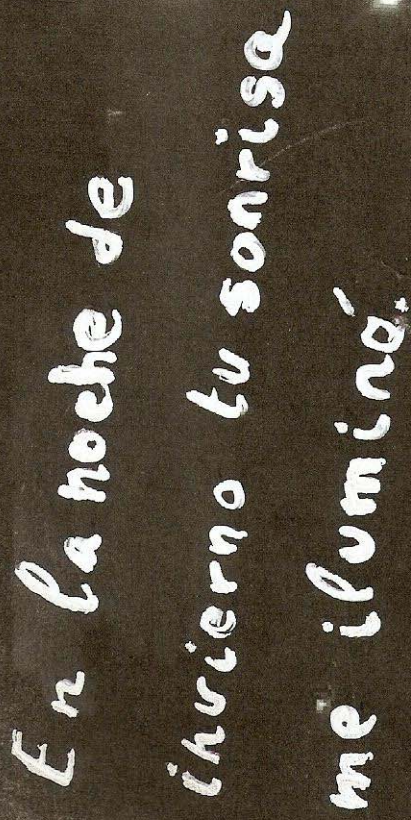 En la noche de
invierno tu sonrisa
me iluminó.